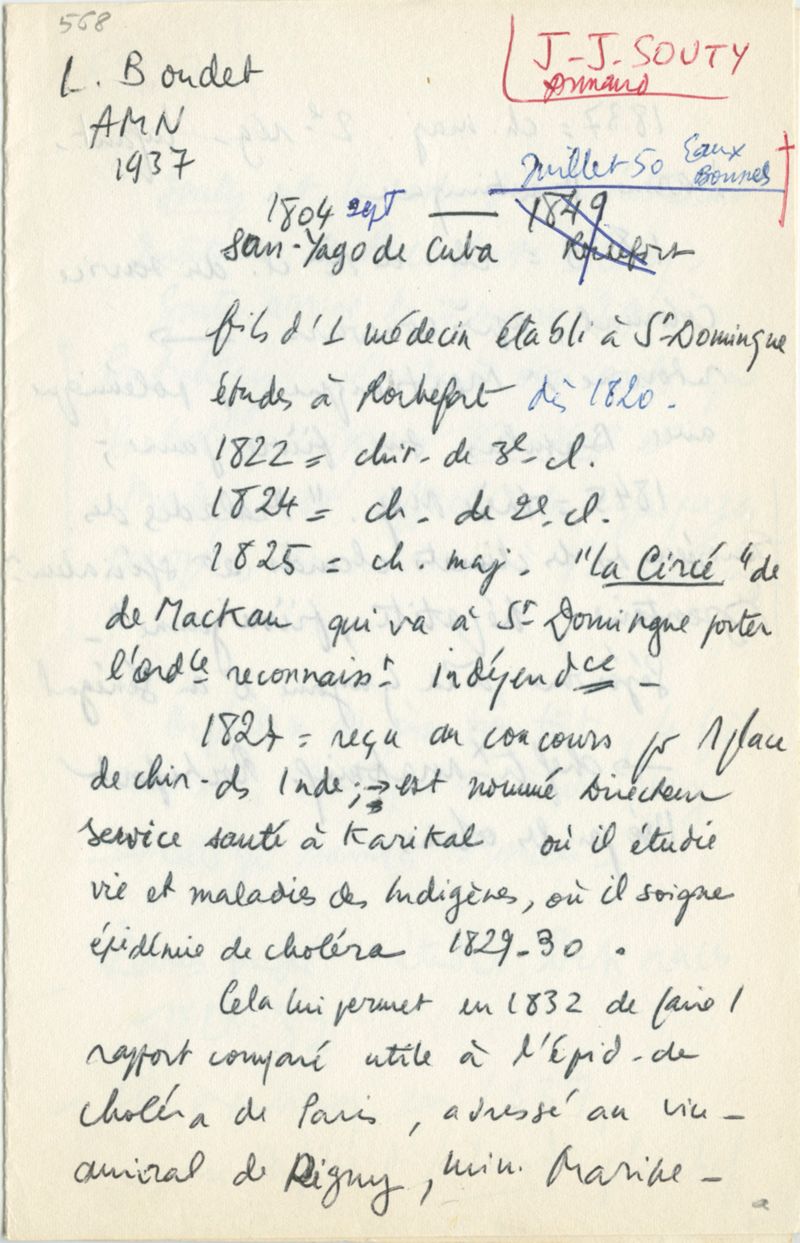 568
L. Boudet
AMN
1937
J-J. SOUTY
Armand
Juillet 50 Eaux Bonnes
1804 sept — 1849
San-Yago de Cuba Rochefort
fils d'1 médecin établi à St-Domingue
études à Rochefort dès 1820.
1822 = chir- de 3e- cl.
1824 = ch- de 2e- cl.
1825 = ch. maj. "la Circé" de
de Mackau qui va à St Domingue porter
l'ordce reconnaisst indépendce -
1827 = reçu au concours pr 1 place
de chir- ds Inde ; → est nommé Directeur
service santé à Karikal où il étudie
vie et maladies des Indigènes, où il soigne
épidémie de choléra 1829-30.
Cela lui permet en 1832 de faire 1
rapport comparé utile à l'épid- de
choléra de Paris, adressé au vice-
amiral de Rigny, min. Marine -